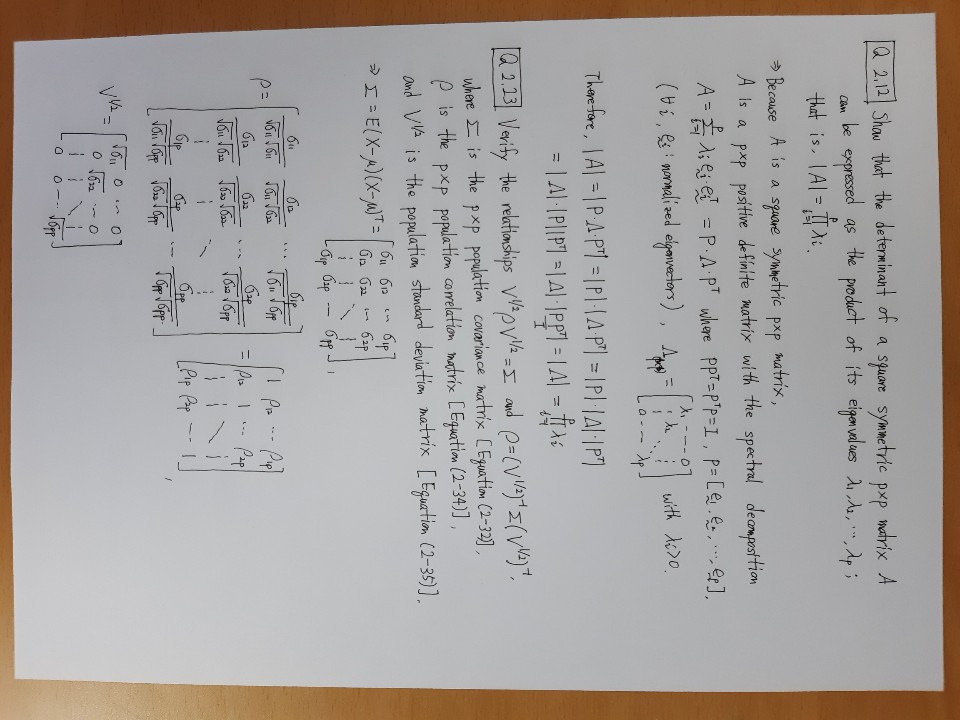 Q 2.12 Show that the determinant of a square symmetric p×p matrix A
can be expressed as the product of its eigenvalues λ₁, λ₂, ⋯, λₚ ;
that is, |A| = ∏ᵢ₌₁ᵖ λᵢ.
⇒ Because A is a square symmetric p×p matrix,
A is a p×p positive definite matrix with the spectral decomposition
A = Σᵢ₌₁ᵖ λᵢ ḛᵢ·ḛᵢᵀ = P·Λ·Pᵀ where PPᵀ=PᵀP=I, P=[ḛ₁, ḛ₂, ⋯, ḛₚ],
(∀i, ḛᵢ : normalized eigenvectors), Λ₍ₚₓₚ₎ = [λ₁ --- 0 ; λ₂ ; 0 -- λₚ] with λᵢ>0.
Therefore, |A| = |P·Λ·Pᵀ| = |P|·|Λ·Pᵀ| = |P|·|Λ|·|Pᵀ|
= |Λ|·|P||Pᵀ| = |Λ|·|PPᵀ| = |Λ| = ∏ᵢ₌₁ᵖ λᵢ
I
Q 2.23 Verify the relationships V^1/2 ρ V^1/2 = Σ and ρ = (V^1/2)⁻¹ Σ (V^1/2)⁻¹,
where Σ is the p×p population covariance matrix [Equation (2-32)],
ρ is the p×p population correlation matrix [Equation (2-34)],
and V^1/2 is the population standard deviation matrix [Equation (2-35)].
⇒ Σ = E(X-μ)(X-μ)ᵀ = [σ₁₁ σ₁₂ ⋯ σ₁ₚ ; σ₁₂ σ₂₂ ⋯ σ₂ₚ ; ⋮ ⋮ ⋱ ⋮ ; σ₁ₚ σ₂ₚ ⋯ σₚₚ],
ρ = [σ₁₁/√σ₁₁√σ₁₁ σ₁₂/√σ₁₁√σ₂₂ ⋯ σ₁ₚ/√σ₁₁√σₚₚ ; σ₁₂/√σ₁₁√σ₂₂ σ₂₂/√σ₂₂√σ₂₂ ⋯ σ₂ₚ/√σ₂₂√σₚₚ ; ⋮ ⋮ ⋱ ⋮ ; σ₁ₚ/√σ₁₁√σₚₚ σ₂ₚ/√σ₂₂√σₚₚ ⋯ σₚₚ/√σₚₚ√σₚₚ] = [1 ρ₁₂ ⋯ ρ₁ₚ ; ρ₁₂ 1 ⋯ ρ₂ₚ ; ⋮ ⋮ ⋱ ⋮ ; ρ₁ₚ ρ₂ₚ ⋯ 1],
V^1/2 = [√σ₁₁ 0 ⋯ 0 ; 0 √σ₂₂ ⋯ 0 ; ⋮ ⋮ ⋱ ⋮ ; 0 0 ⋯ √σₚₚ]